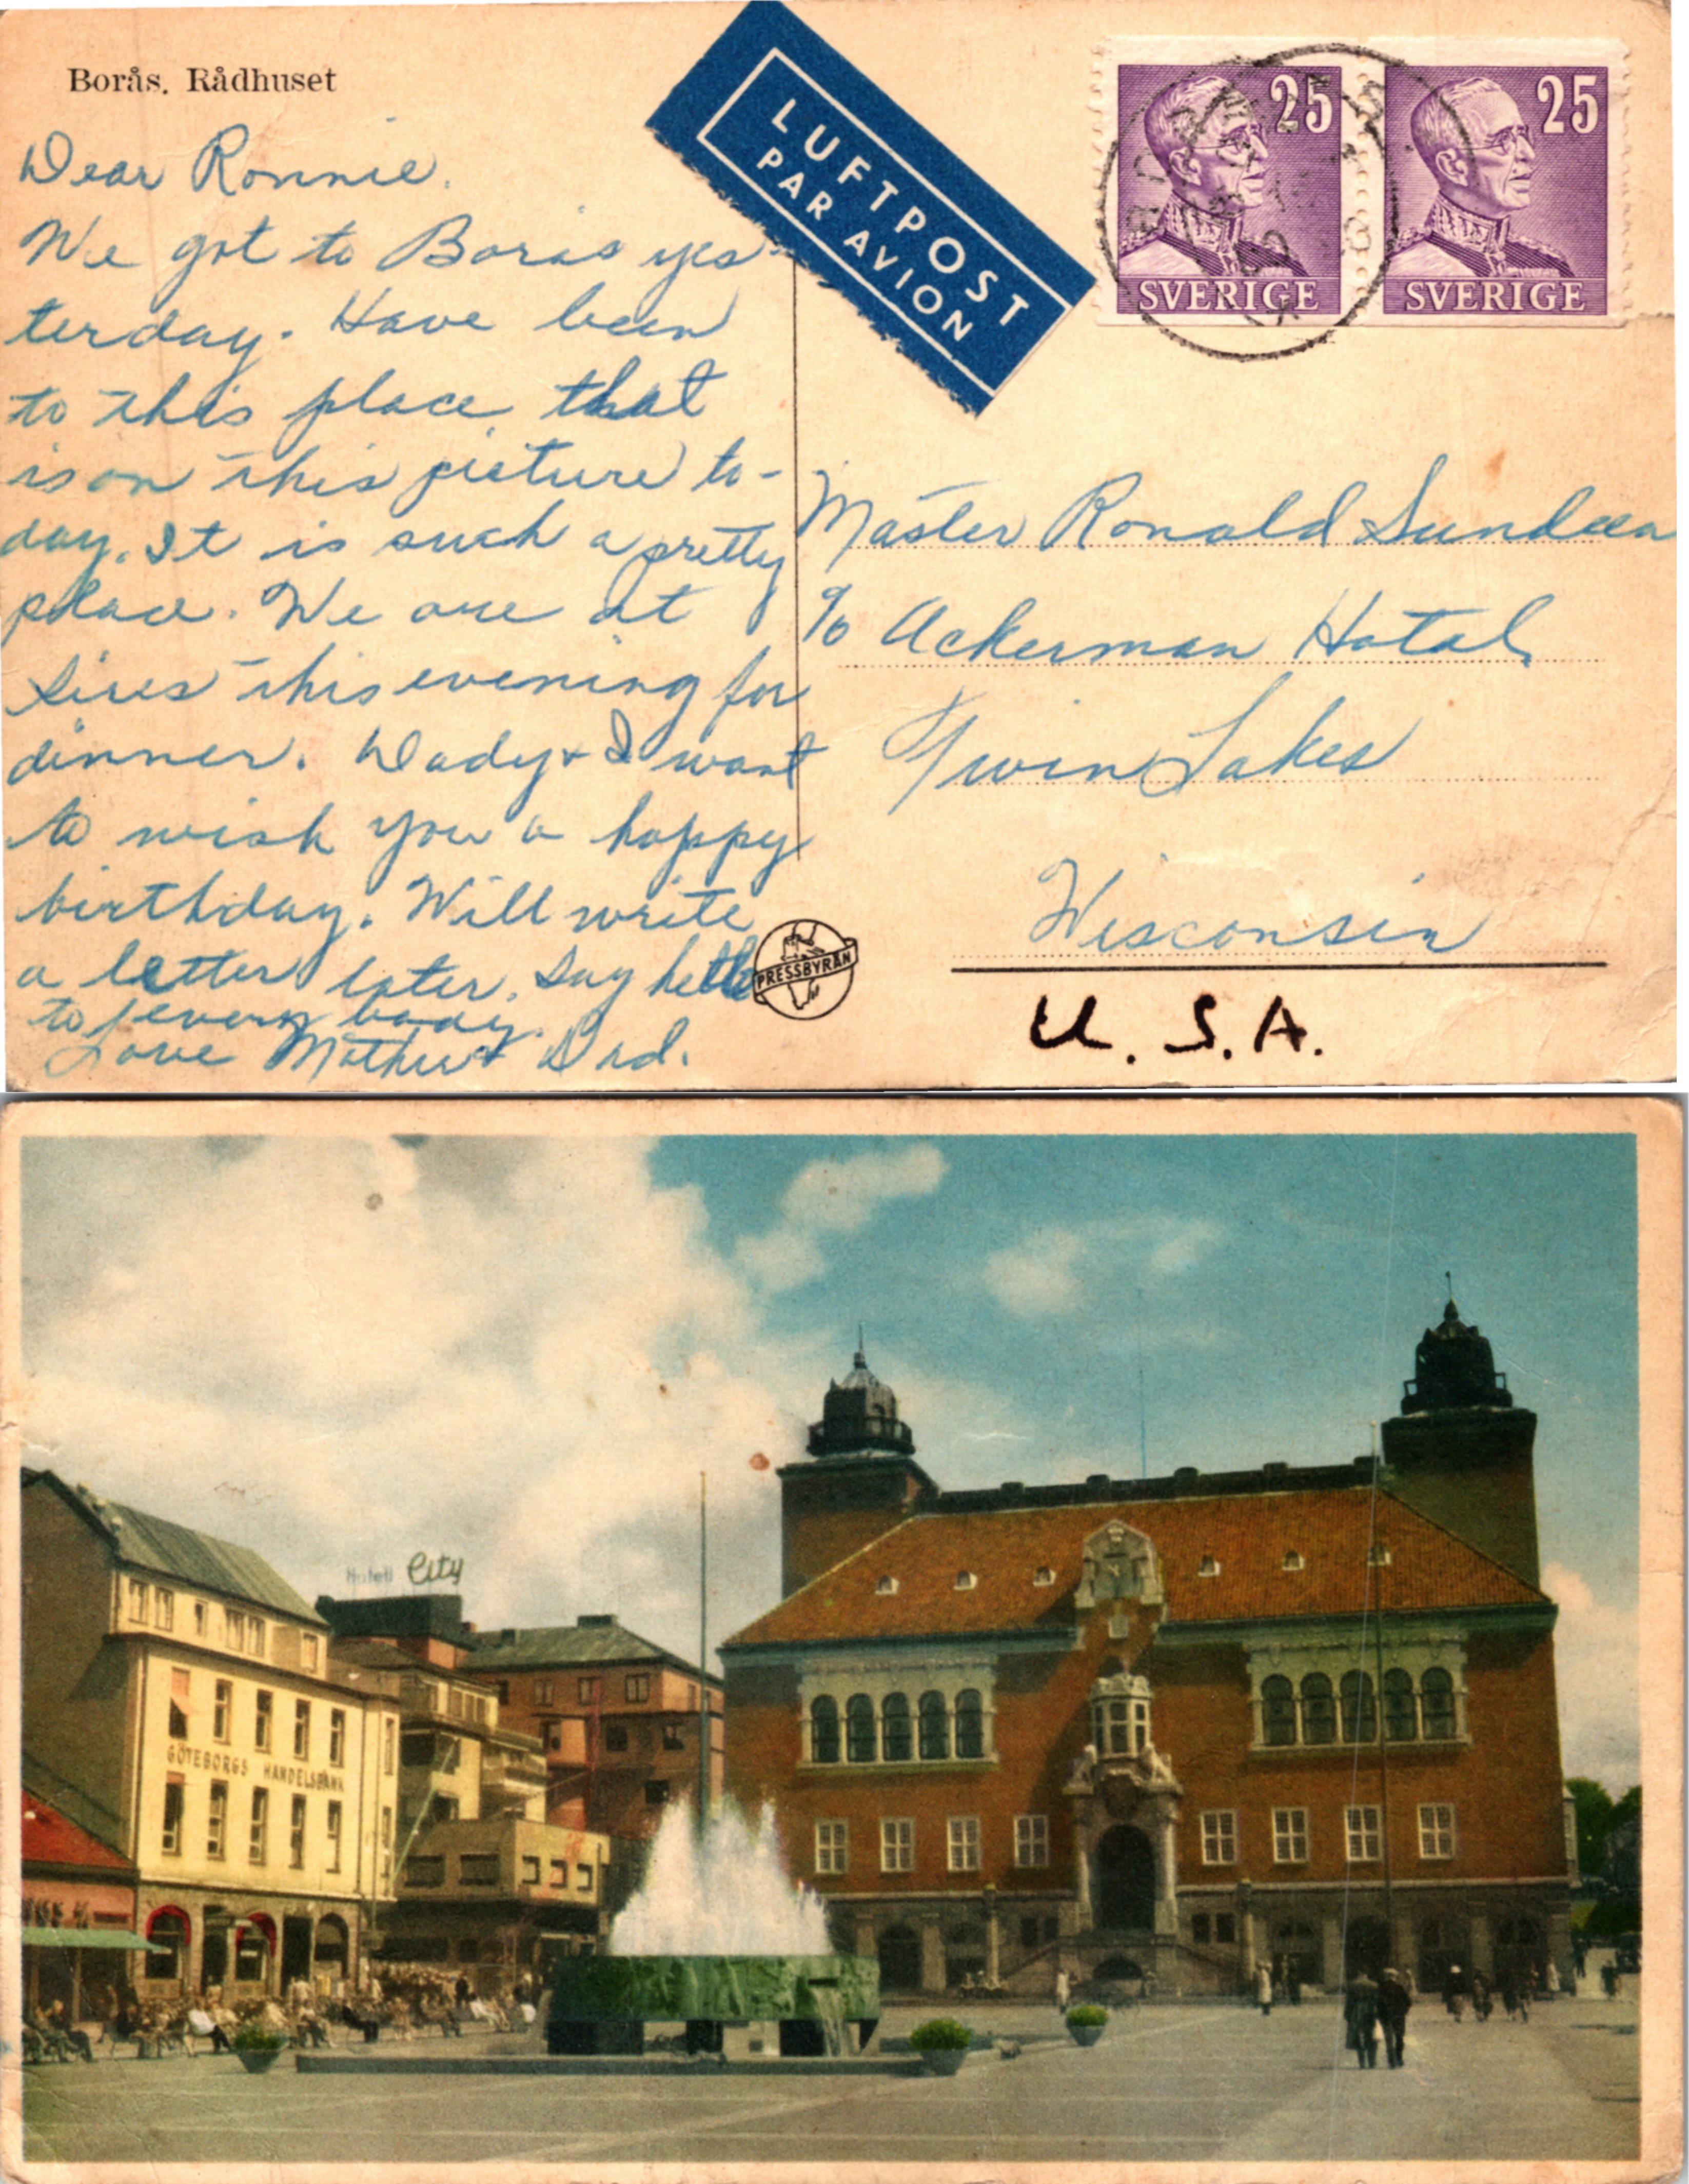 Borås. Rådhuset
LUFTPOST
PAR AVION
25
SVERIGE
25
SVERIGE
Dear Ronnie.
We got to Boras yes-
terday. Have been
to this place that
is on this picture to-
day. It is such a pretty
place. We are at
this evening for
dinner. Dady & I want
to wish you a happy
birthday. Will write
a letter later. Say hello
to everybody.
Love Mother & Dad.
Master Ronald Sundeen
c/o Ackerman Hotel
Twin Lakes
Wisconsin
U.S.A.
PRESSBYRÅN
Hotell City
GÖTEBORGS HANDELSBANK